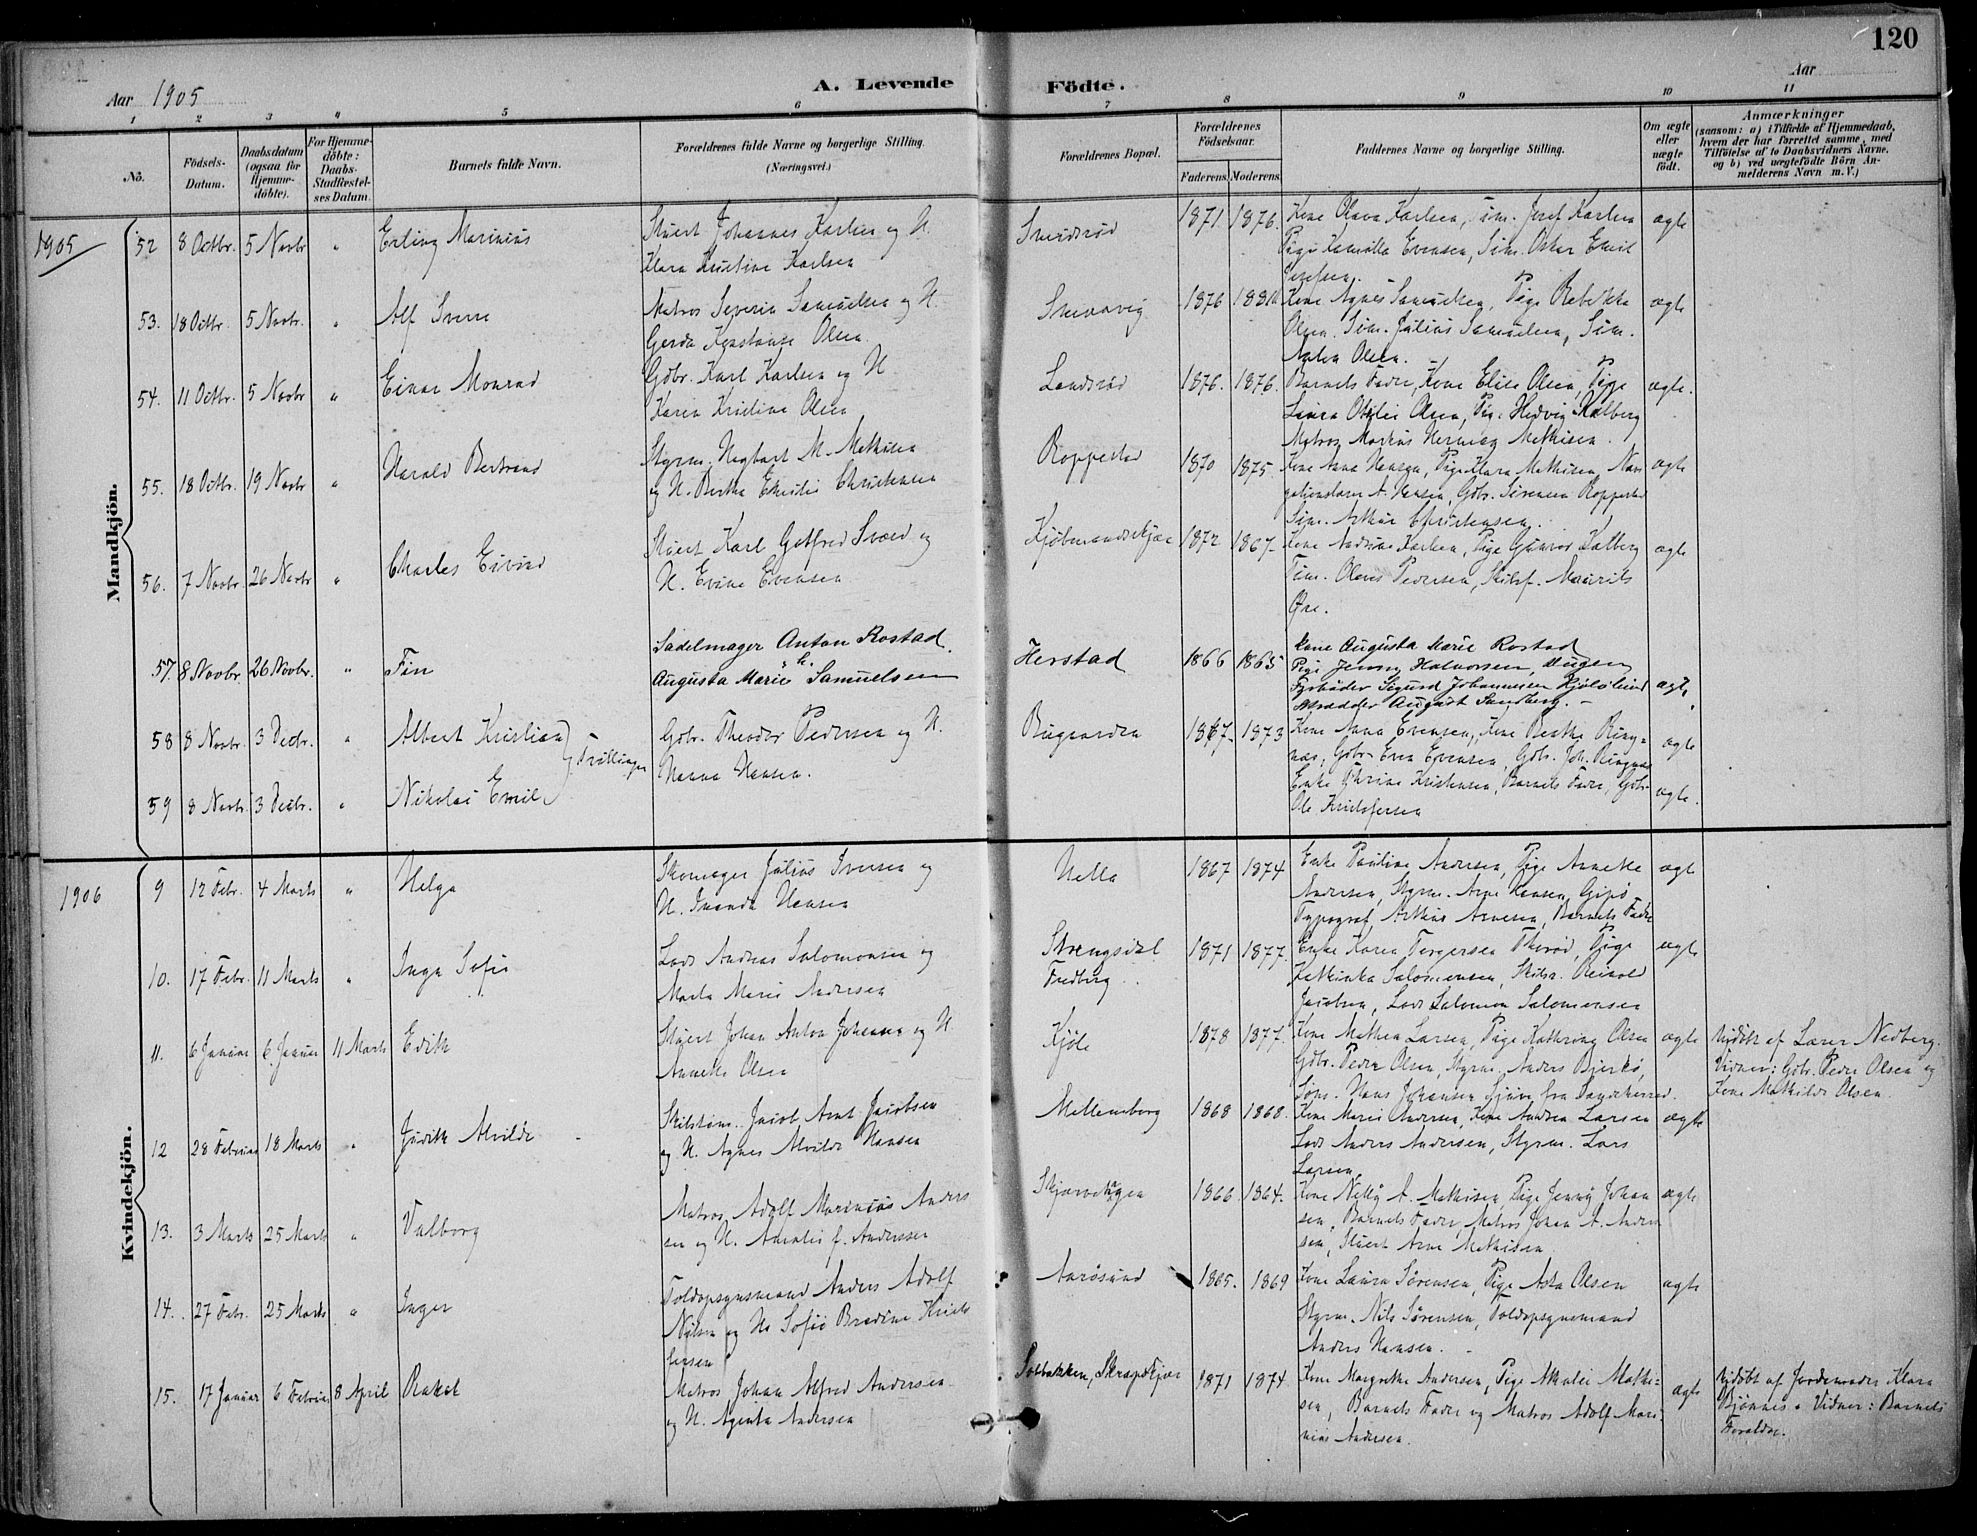 120
Aar 1905
A. Levende Födte.
Aar
1 2 3 4 5 6 7 8 9 10 11
No.
Födsels-Datum.
Daabsdatum (ogsaa for Hjemme-döbte).
For Hjemme-döbte: Daabs-Stadfæstel-ses Datum.
Barnets fulde Navn.
Forældrenes fulde Navne og borgerlige Stilling. (Næringsvei.)
Forældrenes Bopæl.
Forældrenes Födselsaar.
Faderens. Moderens.
Faddernes Navne og borgerlige Stilling.
Om ægte eller uægte födt.
Anmærkninger
(saasom: a) i Tilfælde af Hjemmedaab, hvem der har forrettet samme, med Tilföielse af to Daabsvidners Navne, og b) ved uægtefödte Börn Anmelderens Navn m. V.)
Mandkjön.
1905
52 8 Octbr. 5 Novbr " Erling Marinius
Stuert Johannes Karlsen og H.
Klara Kristine Karlsen
1871 1876.
Kone Olava Karlsen, Töm. Josef Karlsen
Pige Kamilla Evensen, Söm. Oskar Emil
Josefsen.
ægte
53. 18 Octbr. 5 Novbr. " Alf Sverre
Matros Severin Samuelsen og H.
Gerda Konstanse Olsen.
1876
Kone Agnes Samuelsen, Pige Rebekka
Olsen, Söm. Julius Samuelsen, Söm.
Olsen.
ægte
54. 11 Octbr. 5 Novbr " Einar Monrad
Gdbr. Karl Karlsen og H
Karen Kristine Olsen
Landsrød
1876. 1876.
Barnets Fader, Kone Elise Olsen, Pige
Laura Otilie Olsen, Pig. Hedvig Kalberg
Matros Markus Herman Mathisen.
ægte.
55. 18 Octbr. 19 Novbr " Harald Bertrand
Styrm. Hagbart M. Mathisen
og H. Berthe Christensen
Roppestad
1870 1875.
Kone Anna Hansen, Pige Klara Mathisen, Navi
gationslærer A. Hansen, Gdbr. Sörensen Roppestad
Söm. Arthur Christensen.
ægte
56. 7 Novbr. 26 Novbr " Charles Eivind
Stuert Karl Gotfred Sværd og
H. Evine Evensen
Kjöbmandskjær
1872 1867.
Kone Andrine Karlsen, Pige Gunvor Kalberg
Töm. Olaves Pedersen, Skibsf. Maurits
Øre.
ægte
57. 8 Novbr 26 Novbr. " Fin
Sadelmager Anton Rostad.
Augusta Marie f. Samuelsen
Herstad
1866 1865
Kone Augusta Marie Rostad
Pige Jenny Halvorsen, Haugen
Fyrböder Sigurd Johannesen Kjölölund
Skrædder August Sandberg. -
ægte.
58 8 Novbr. 3 Decbr. " Albert Kristian
Tvillinger
Gdbr. Theodor Pedersen og H.
Hanna Hansen.
Bugaarden
1867. 1873
Kone Anna Evensen, Kone Berthe Ring-
næs, Gdbr. Even Evensen, Gdbr. Joh. Ringnæs
Enke Thrine Kristensen, Barnets Fader, Gdbr
Ole Kristofersen
ægte
59 8 Novbr. 3 Decbr. " Nikolai Emil
ægte.
Kvindekjön.
1906
9 12 Febr. 4 Marts " Helga
Skomager Julius Iversen og
H. Hansen
1867 1874
Enke Pauline Andersen, Pige Annette
Andersen, Styrm. Arne Hansen, Gipö
Typograf Arthur Arnesen, Barnets Fader
ægte
10. 17 Febr. 11 Marts " Inga Sofie
Lods Andreas Salomonsen og
Marta Marie Andersen
Strengsdal
Fredberg.
1871 1877.
Enke Karen Torgersen Thorød, Pige
Kathinka Salomonsen, Skibsr. Reinold
Jacobsen, Lods Salomon Salomonsen
ægte
11. 6 Januar 6 Januar 11 Marts Edith
Stuert Johan Anton Johansen og H.
Annette Olsen
Kjøle
1878 1877.
Kone Mathea Larsen, Pige Kathrine Olsen
Gdbr. Peder Olsen, Styrm. Anders Bjerkø,
Söm. Hans Johansen Sjuve fra Sandeherred.
ægte
Hjdöbt af Lærer Nedberg.
Vidner: Gdbr. Peder Olsen og
Kone Mathilde Olsen
12 28 Februar 18 Marts " Judith Alvilde
Skibstöm. Jacob Arnt Jacobsen
og H. Agnes Alvilde Hansen
Mellemborg
1868 1868.
Kone Marie Andersen, Kone Andrea Larsen
Lods Anders Andersen, Styrm. Lars
Larsen
ægte
13. 3 Marts 25 Marts " Valborg
Matros Adolf Marinius Anders
en og H. Amalie f. Andersen
1866 1864.
Kone Nelly A. Mathisen, Pige Jenny Johan
sen, Barnets Fader, Matros Johan A. Ander
sen, Stuert Arne Mathisen.
ægte
14. 27 Febr. 25 Marts " Inger
Toldopsynsmand Anders Adolf
Nilsen og H. Sofie Bredine Krist
fersen
Aarøsund
1865. 1869
Kone Laura Sørensen, Pige Asta Olsen
Styrm. Nils Sørensen, Toldopsynsmand
Anders Hansen. -
ægte
15. 17 Januar 6 Februar 8 April Rakel
Matros Johan Alfred Andersen
og H. Agenta Andersen
Solbakken, Skrapekjær
1871 1874
Kone Margrethe Andersen, Pige Amalie Mathi-
sen, Barnets Fader og Matros Adolf Mari
nius Andersen.
ægte
Hjdöbt af Jordemoder Klara
Bjönnes. Vidner: Barnets
Forældre.